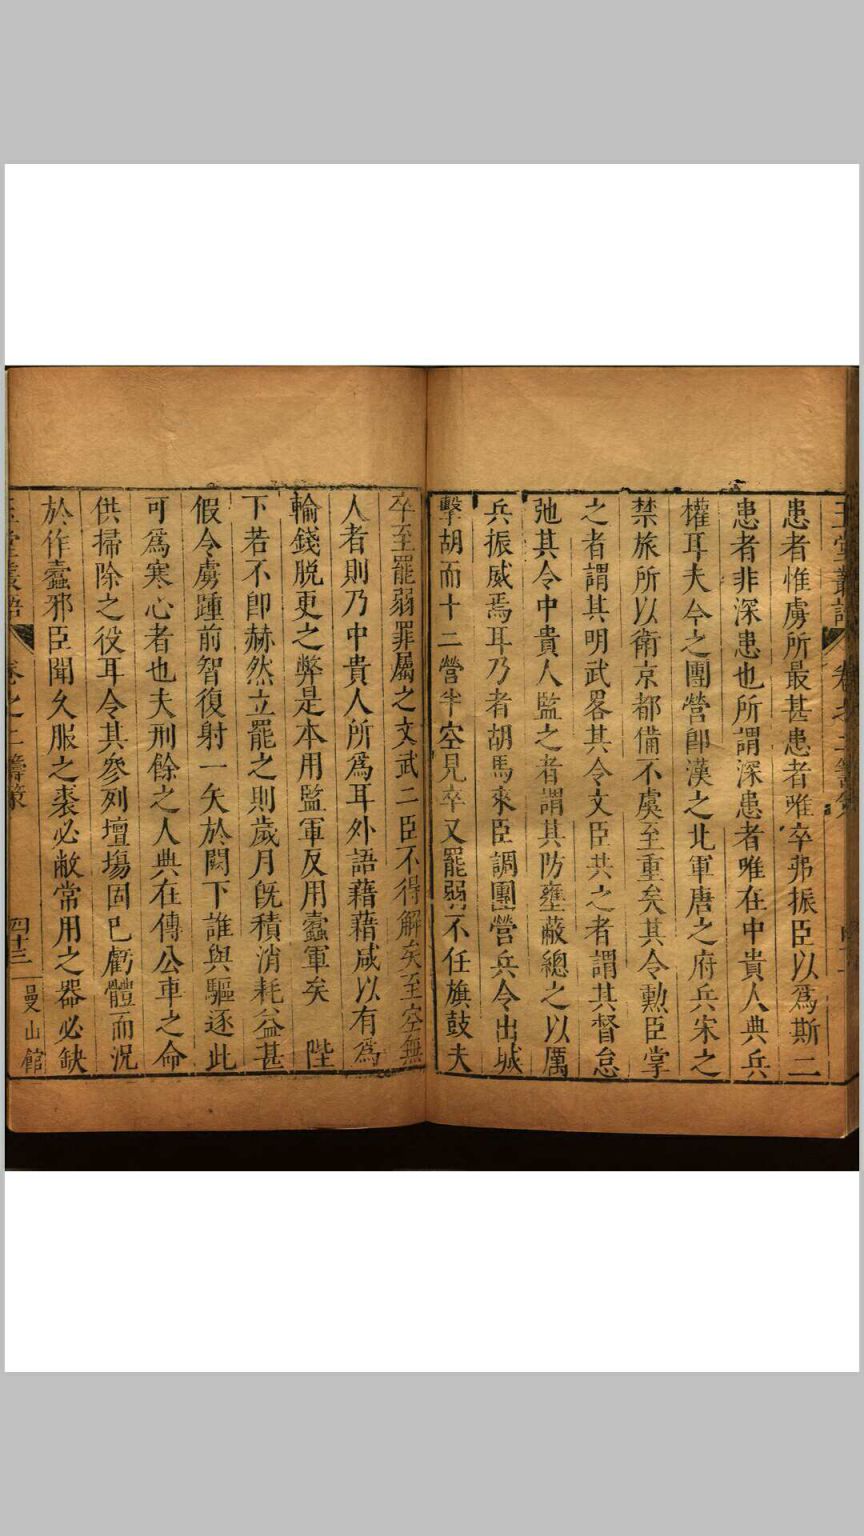 玉堂叢語 卷之二籌策
患者惟虜所最甚患者唯卒弗振臣以爲斯二
患者非深患也所謂深患者唯在中貴人典兵
權耳夫今之團營卽漢之北軍唐之府兵宋之
禁旅所以衛京都備不虞至重矣其令勲臣掌
之者謂其明武畧其令文臣共之者謂其督怠
弛其令中貴人監之者謂其防壅蔽總之以厲
兵振威焉耳乃者胡馬來臣調團營兵令出城
擊胡而十二營半空見卒又罷弱不任旗鼓夫
卒至罷弱罪屬之文武二臣不得解矣至空無
人者則乃中貴人所爲耳外語藉藉咸以有爲
輸錢脱更之弊是本用監軍反用蠹軍矣 陛
下若不卽赫然立罷之則歲月旣積消耗益甚
假令虜踵前智復射一矢於闕下誰與驅逐此
可爲寒心者也夫刑餘之人典在傳公車之命
供掃除之役耳令其參列壇場固已虧體而況
於作蠹邪臣聞久服之裘必敝常用之器必缺
玉堂叢語 卷之二籌策 四十三 曼山館